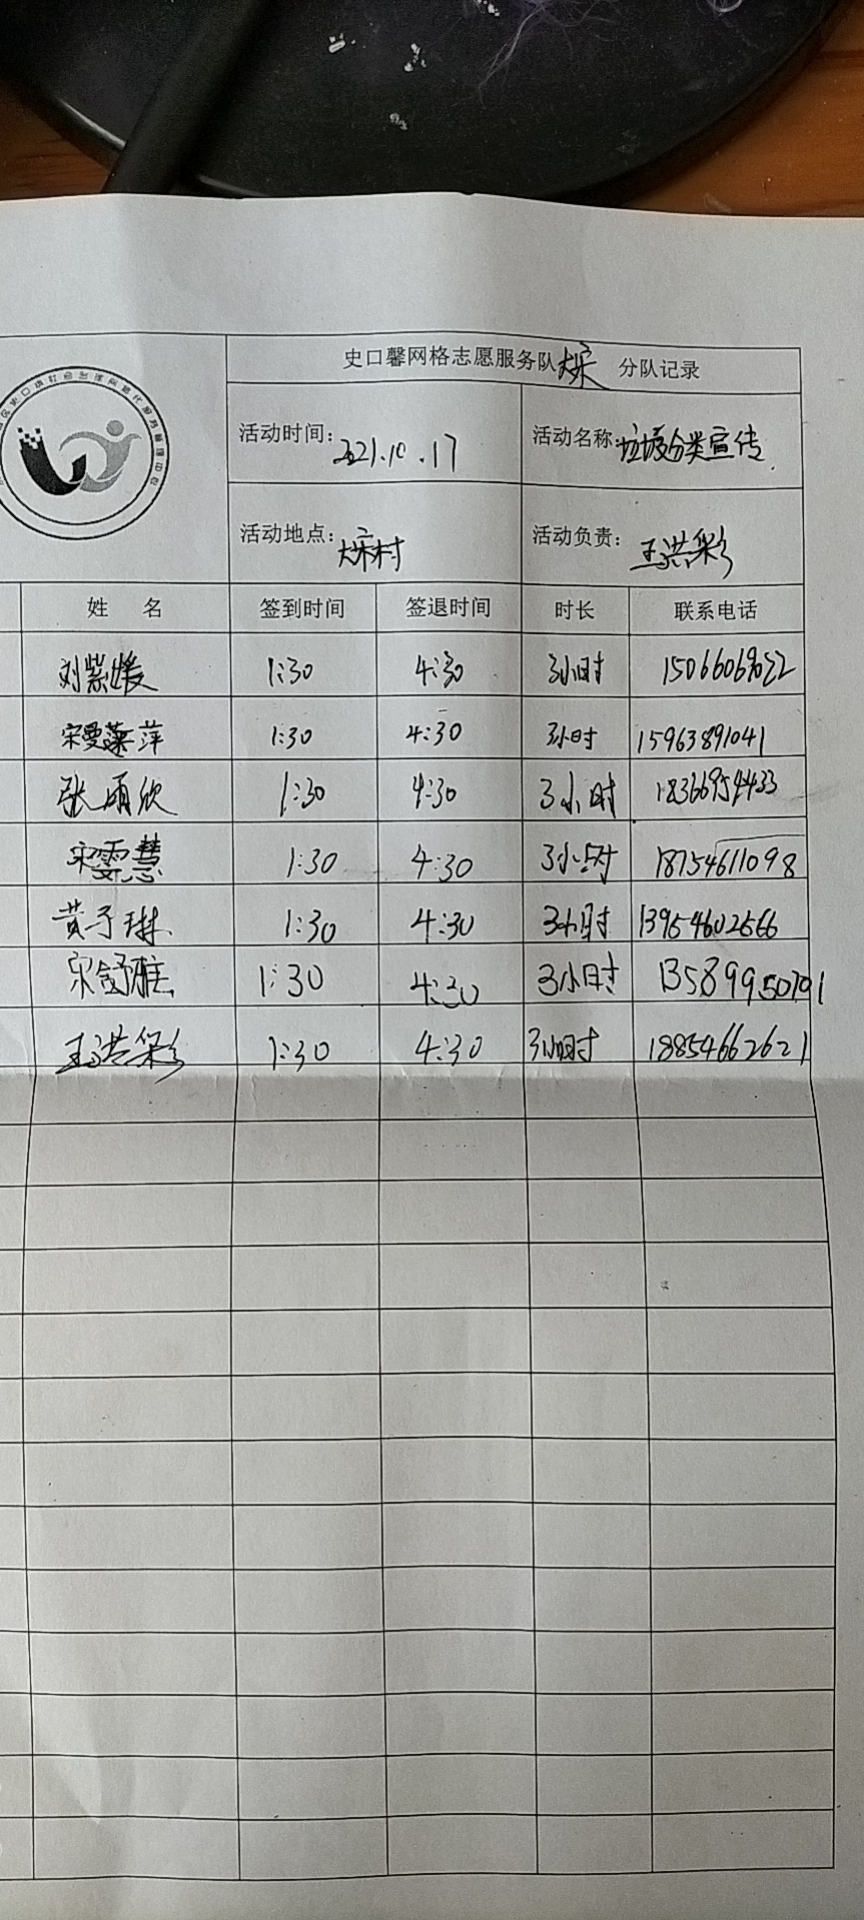 史口馨网格志愿服务队大宋 分队记录
活动时间: 2021.10.17 活动名称: 垃圾分类宣传
活动地点: 大宋村 活动负责: 王洪彩
姓 名 签到时间 签退时间 时长 联系电话
刘紫媛 1:30 4:30 3小时 15066069022
宋曼 萍 1:30 4:30 3小时 15963891041
张雨欣 1:30 4:30 3小时 18366954433
宋雯慧 1:30 4:30 3小时 18754611098
黄子琳 1:30 4:30 3小时 13954602566
宋舒雅 1:30 4:30 3小时 13589950701
王洪彩 1:30 4:30 3小时 18854662621